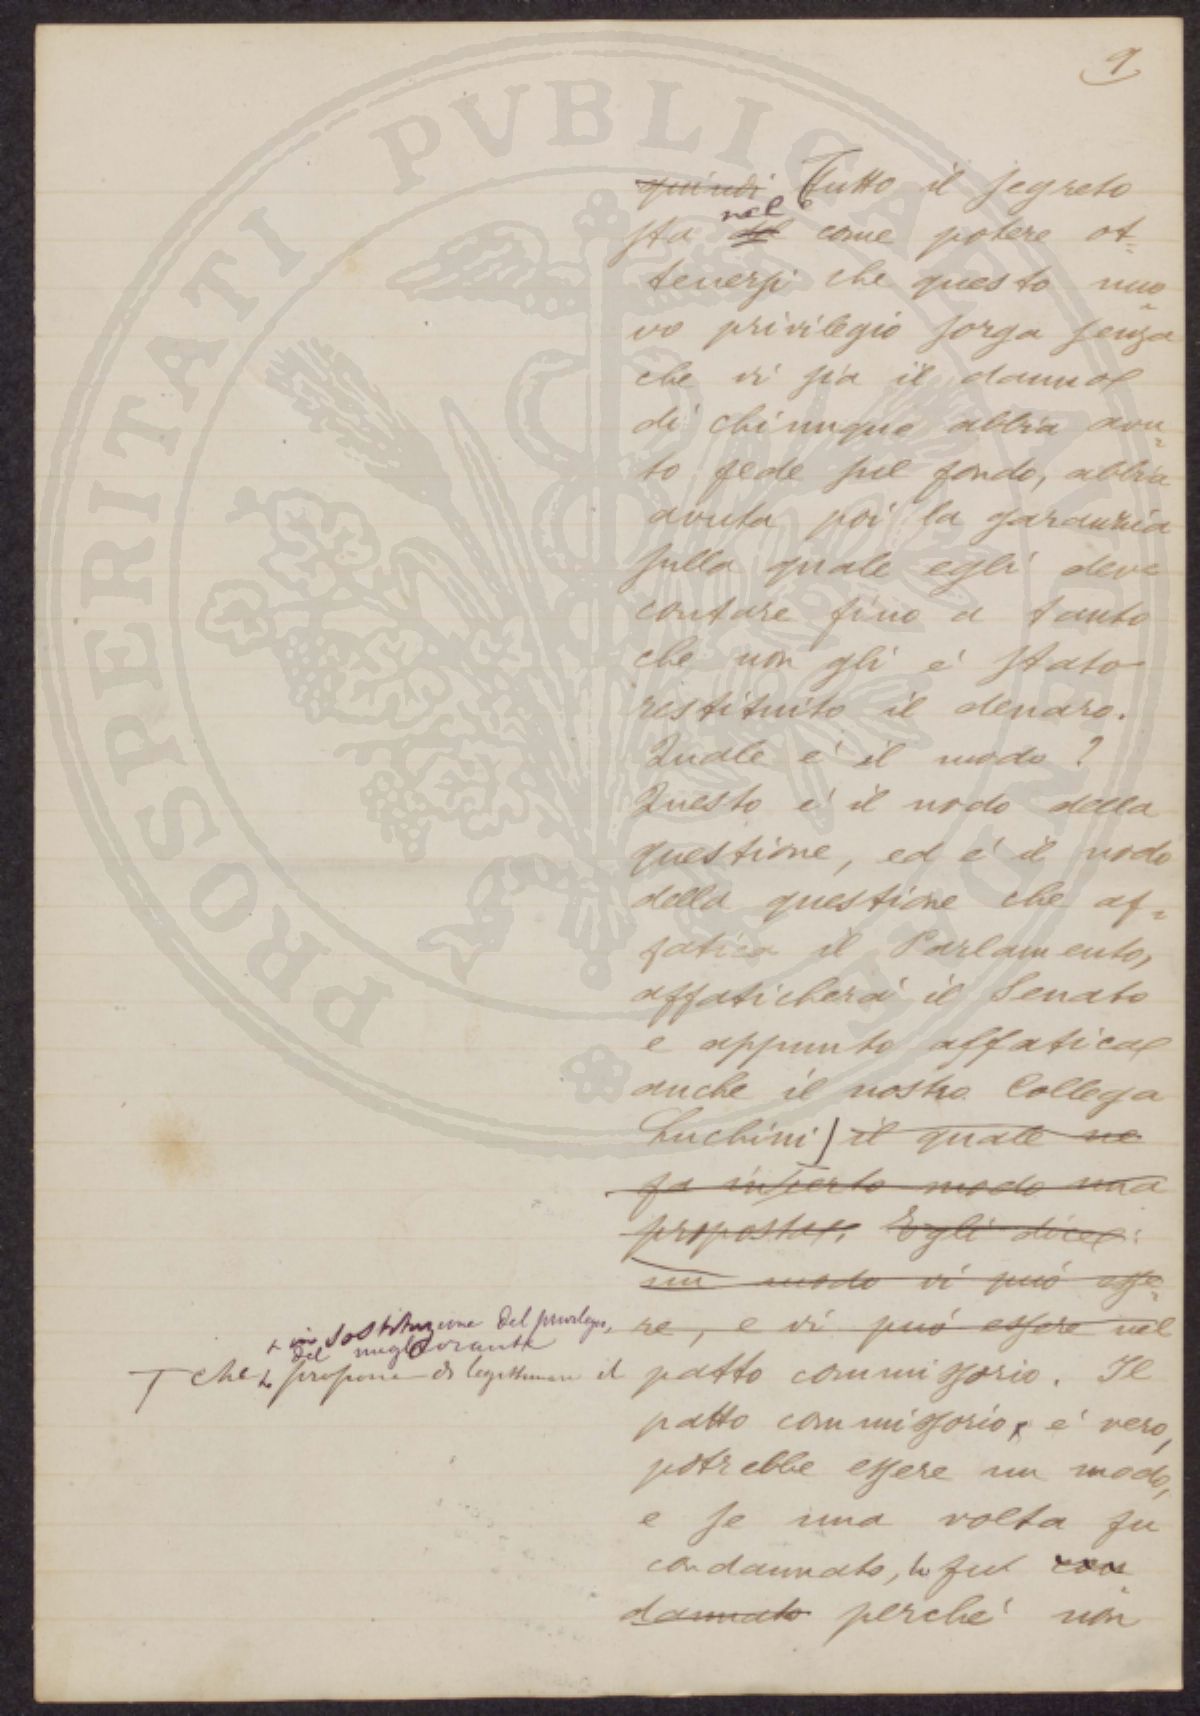 9
quindi Tutto il segreto
sta del nel come potere ot=
tenersi che questo nuo=
vo privilegio sorga senza
che vi sia il danno
di chiunque abbia avu=
to fede sul fondo, abbia
avuta poi la garanzia
sulla quale egli deve
contare fino a tanto
che non gli é stato
restituito il denaro.
Quale é il modo?
Questo é il nodo della
questione, ed é il nodo
della questione che af=
fatica il Parlamento,
affaticherá il Senato
e appunto affatica
anche il nostro Collega
Luchini) il quale ne
fa in certo modo una
proposta. Egli dice:
un modo vi puó esse=
re, e vi puó essere nel
+ in sostituzione del privilegio,
del migliorante
T che propone di legittimare il
patto commissorio. Il
patto commissorio, é vero,
potrebbe essere un modo,
e se una volta fu
condannato, lo fu con=
dannato perché non
PROSPERITATI PVBLICAE